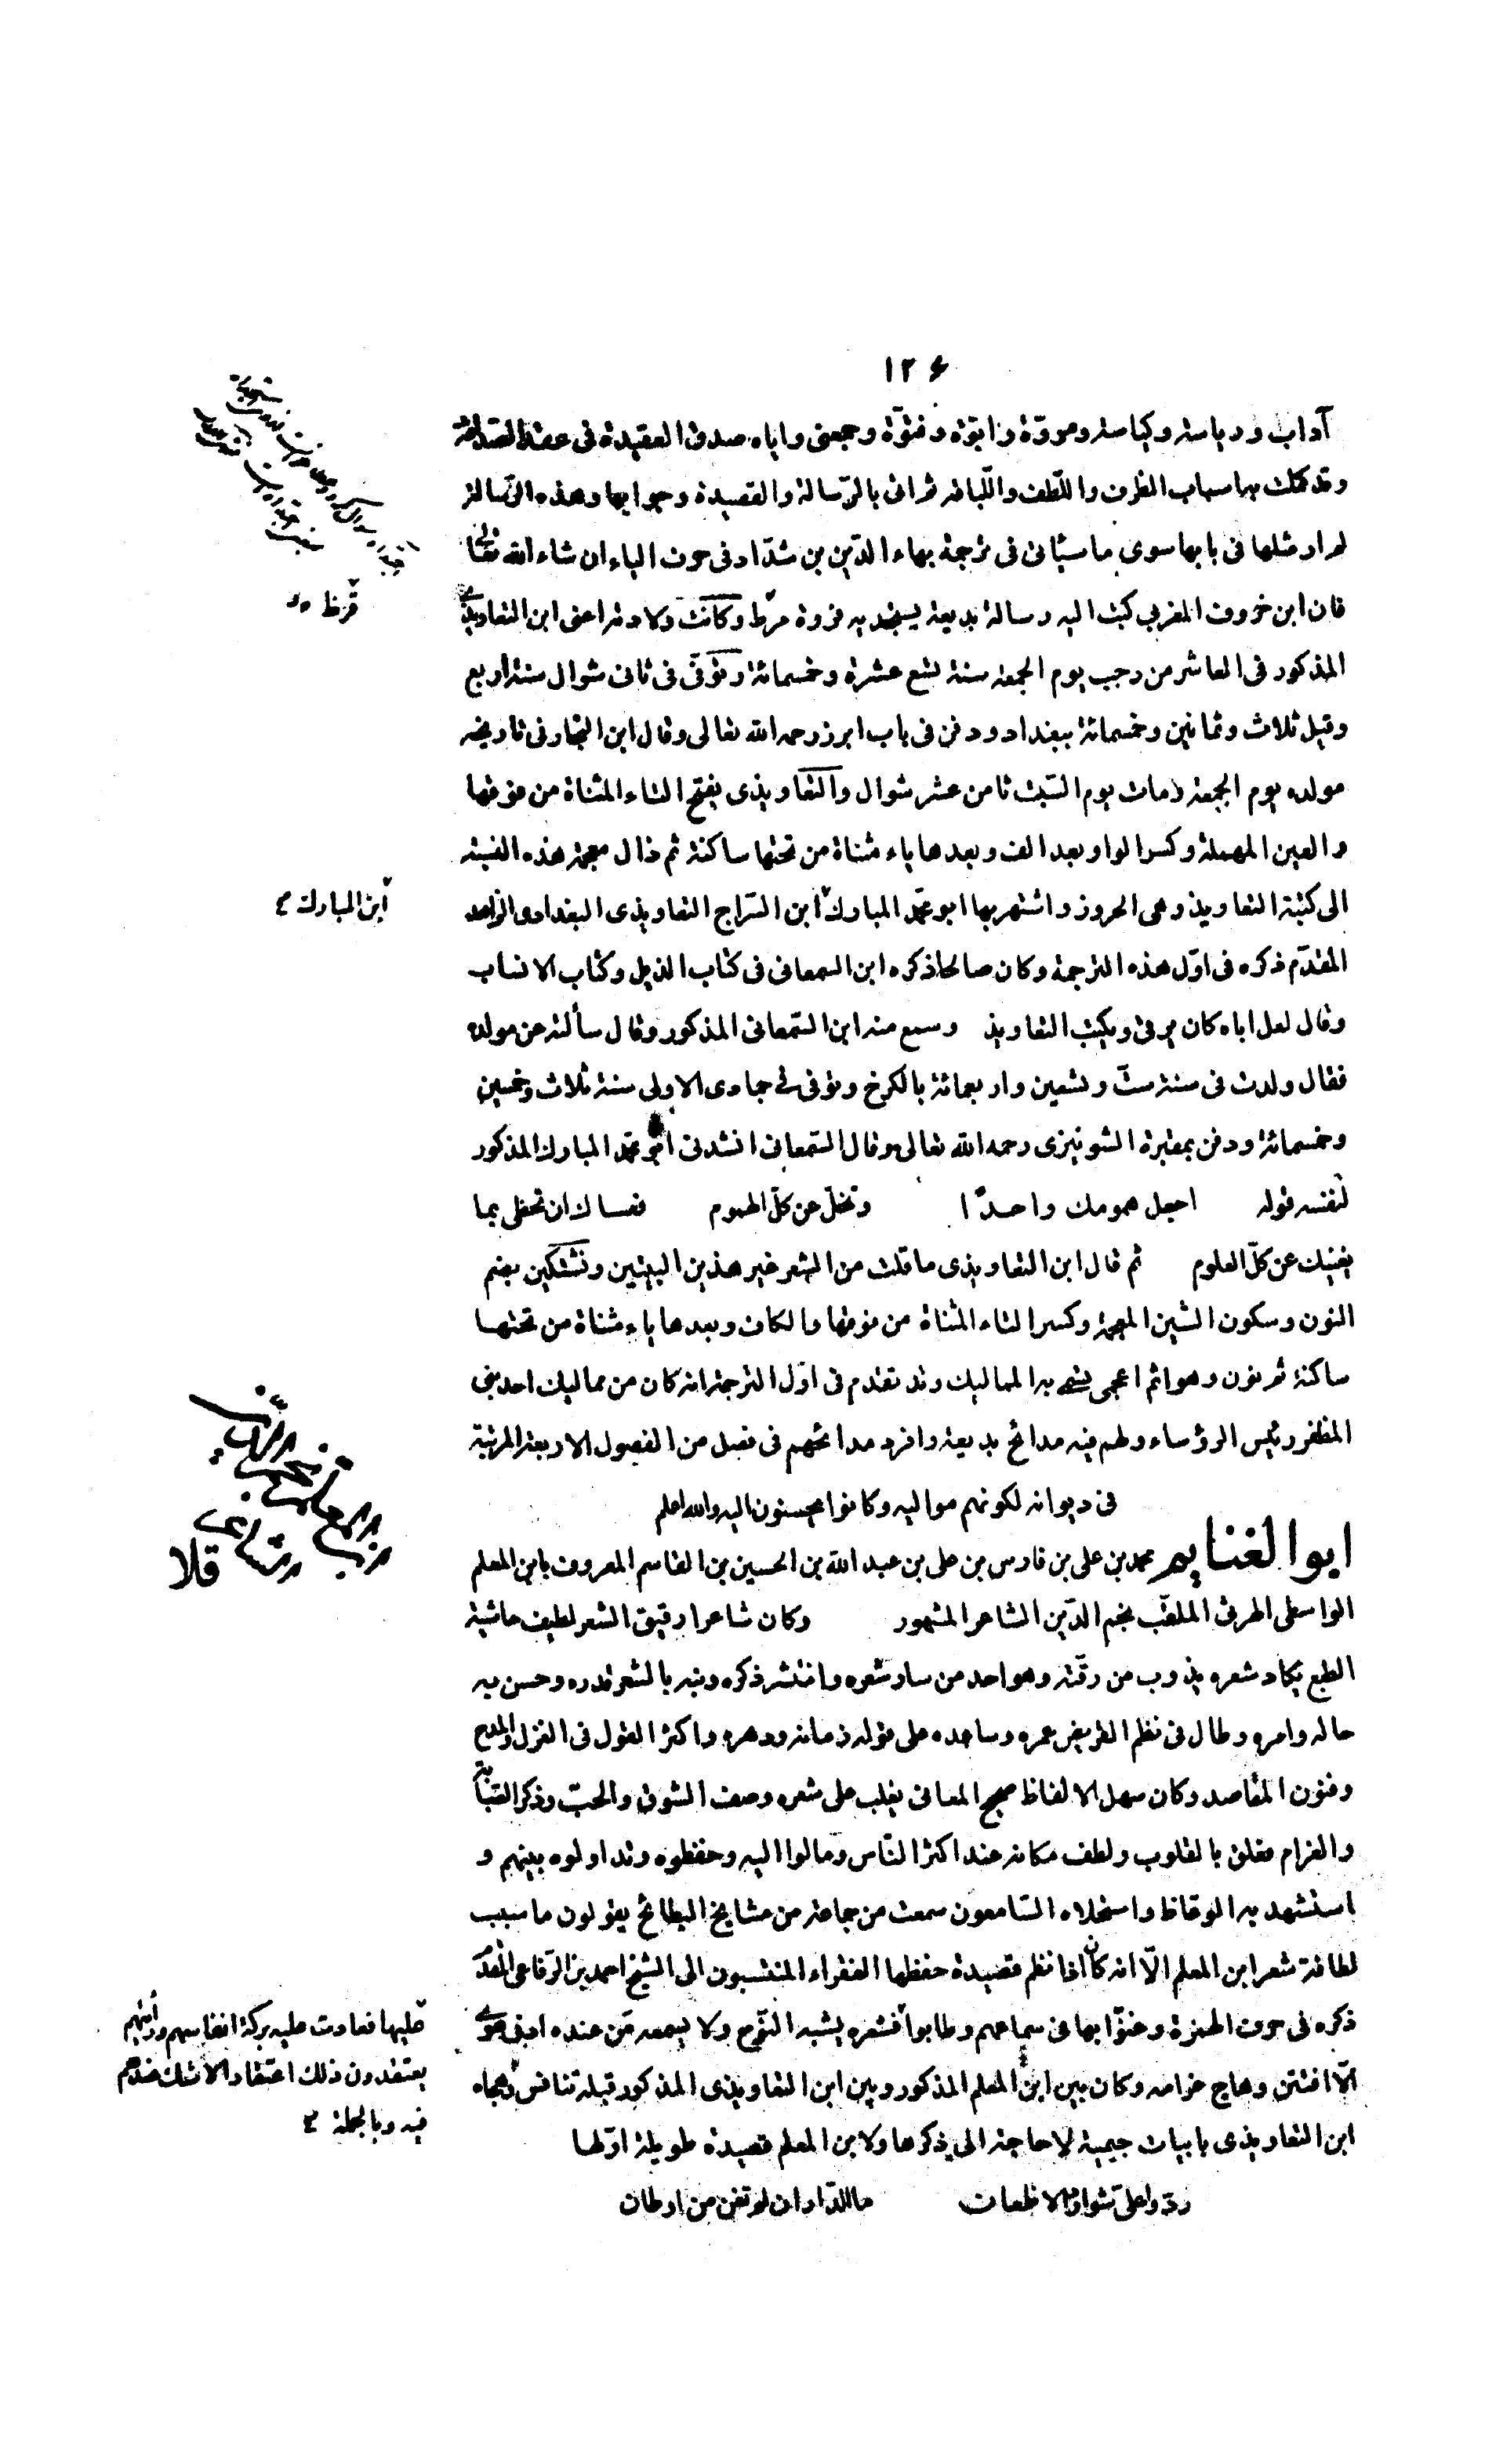 ۱۲۶
آداب ورياسة وكياسة ومروّة وابوّة وفتوّة وجمعنى واياه صدق العقيدة فى عقد الصداقة
وقد كملت بها اسباب الظرف واللّطف واللّباقة ثم اتى بالرّسالة والقصيدة وجوابها وهذه الرّسالة
لم ار مثلها فى بابها سوى ما سيأتى فى ترجمة بهاء الدّين بن شدّاد فى حرف الياء ان شاء الله تعالى
فان ابن خروف المغربى كتب اليه رسالة بديعة يستجديه فروة قرظ وكانت ولادته اعنى ابن التعاويذى
المذكور فى العاشر من رجب يوم الجمعة سنة تسع عشرة وخمسمائة وتوفّى فى ثانى شوال سنة اربع
وقيل ثلاث وثمانين وخمسمائة ببغداد ودفن فى باب ابرز رحمه الله تعالى وقال ابن النجار فى تاريخه
مولده يوم الجمعة ومات يوم السّبت ثامن عشر شوال والتعاويذى بفتح التاء المثناة من فوقها
والعين المهملة وكسر الواو بعد الف وبعدها ياء مثناة من تحتها ساكنة ثم ذال معجمة هذه النسبة
الى كتبة التعاويذ وهى الحروز واشتهر بها ابو محمّد المبارك ابن السّراج التعاويذى البغدادى الزاهد
المقدّم ذكره فى اوّل هذه الترجمة وكان صالحا ذكره ابن السمعانى فى كتاب الذيل وكتاب الانساب
وقال لعل اباه كان يرقى ويكتب التعاويذ وسمع منه ابن السّمعانى المذكور وقال سألته عن مولده
فقال ولدت فى سنة ستّ وتسعين واربعمائة بالكرخ وتوفى فى جمادى الاولى سنة ثلاث وخمسين
وخمسمائة ودفن بمقبرة الشونيزى رحمه الله تعالى وقال السّمعانى انشدنى ابو محمّد المبارك المذكور
لنفسه قوله اجعل همومك واحدًا وتخلّ عن كلّ الهموم فعساك ان تحظى بما
يغنيك عن كلّ العلوم ثم قال ابن التعاويذى ما قلت من الشعر غير هذين البيتين ونشتكين بضم
النون وسكون الشين المعجمة وكسر التاء المثناة من فوقها والكاف وبعدها ياء مثناة من تحتها
ساكنة ثم نون وهو اسم اعجمى يسمى به المماليك وقد تقدم فى اوّل الترجمة انه كان من مماليك احد بنى
المظفر رئيس الرؤساء ولهم فيه مدائح بديعة وافرد مدائحهم فى فصل من الفصول الاربعة المرتبة
فى ديوانه لكونهم مواليه وكانوا يحسنون اليه والله اعلم
ابوالغنايم محمد بن على بن فارس بن على بن عبد الله بن الحسين بن القاسم المعروف بابن المعلم
الواسطى الهرثى الملقّب بنجم الدّين الشاعر المشهور وكان شاعرا رقيق الشعر لطيف حاشية
الطبع يكاد شعره يذوب من رقّته وهو احد من سار شعره وانتشر ذكره ونبه بالشعر قدره وحسن به
حاله وامره وطال فى نظم القريض عمره وساعده على قوله زمانه ودهره واكثر القول فى الغزل والمدح
وفنون المقاصد وكان سهل الالفاظ صحيح المعانى يغلب على شعره وصف الشوق والحبّ وذكر الصّبابة
والغرام فعلق بالقلوب ولطف مكانه عند اكثر النّاس ومالوا اليه وحفظوه وتداولوه بينهم و
استشهد به الوعّاظ واستحلاه السّامعون سمعت من جماعة من مشايخ البطائح يقولون ما سبب
لطافة شعر ابن المعلم الّا انه كان اذا نظم قصيدة حفظها الفقراء المنتسبون الى الشيخ احمد بن الرّفاعى المقدّم
ذكره فى حرف الهمزة وغنّوا بها فى سماعهم وطابوا فشعره يشبه النّوح ولا يسمعه من عنده ادنى هوى
الّا افتتن وهاج غرامه وكان بين ابن المعلم المذكور وبين ابن التعاويذى المذكور قبله تنافس وهجاه
ابن التعاويذى بابيات جيمية لا حاجة الى ذكرها ولابن المعلم قصيدة طويلة اوّلها
ردّوا علىّ شوارد الاظعان ما للدّار ان لم تغن من اوطان
قرظ
ابن المبارك
قلا
عليها فعادت عليه بركة انفاسهم ورأيتهم
يعتقدون ذلك اعتقاد الا شك عندهم
فيه وبالجملة